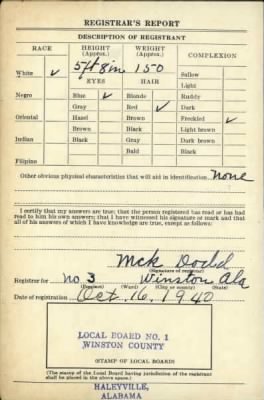 REGISTRAR'S REPORT
DESCRIPTION OF REGISTRANT
RACE HEIGHT (Approx.) WEIGHT (Approx.) COMPLEXION
White ✓ 5 ft 8 in 150 Sallow
EYES HAIR Light
Negro Blue ✓ Blonde Ruddy
Gray Red ✓ Dark
Oriental Hazel Brown Freckled ✓
Brown Black Light brown
Indian Black Gray Dark brown
Bald Black
Filipino
Other obvious physical characteristics that will aid in identification None
I certify that my answers are true; that the person registered has read or has had
read to him his own answers; that I have witnessed his signature or mark and that
all of his answers of which I have knowledge are true, except as follows:
Mck Dodd
(Signature of registrar)
Registrar for No 3 Winston Ala
(Precinct) (Ward) (City or county) (State)
Date of registration Oct. 16, 1940
LOCAL BOARD NO. 1
WINSTON COUNTY
(STAMP OF LOCAL BOARD)
(The stamp of the Local Board having jurisdiction of the registrant
shall be placed in the above space.)
HALEYVILLE,
ALABAMA